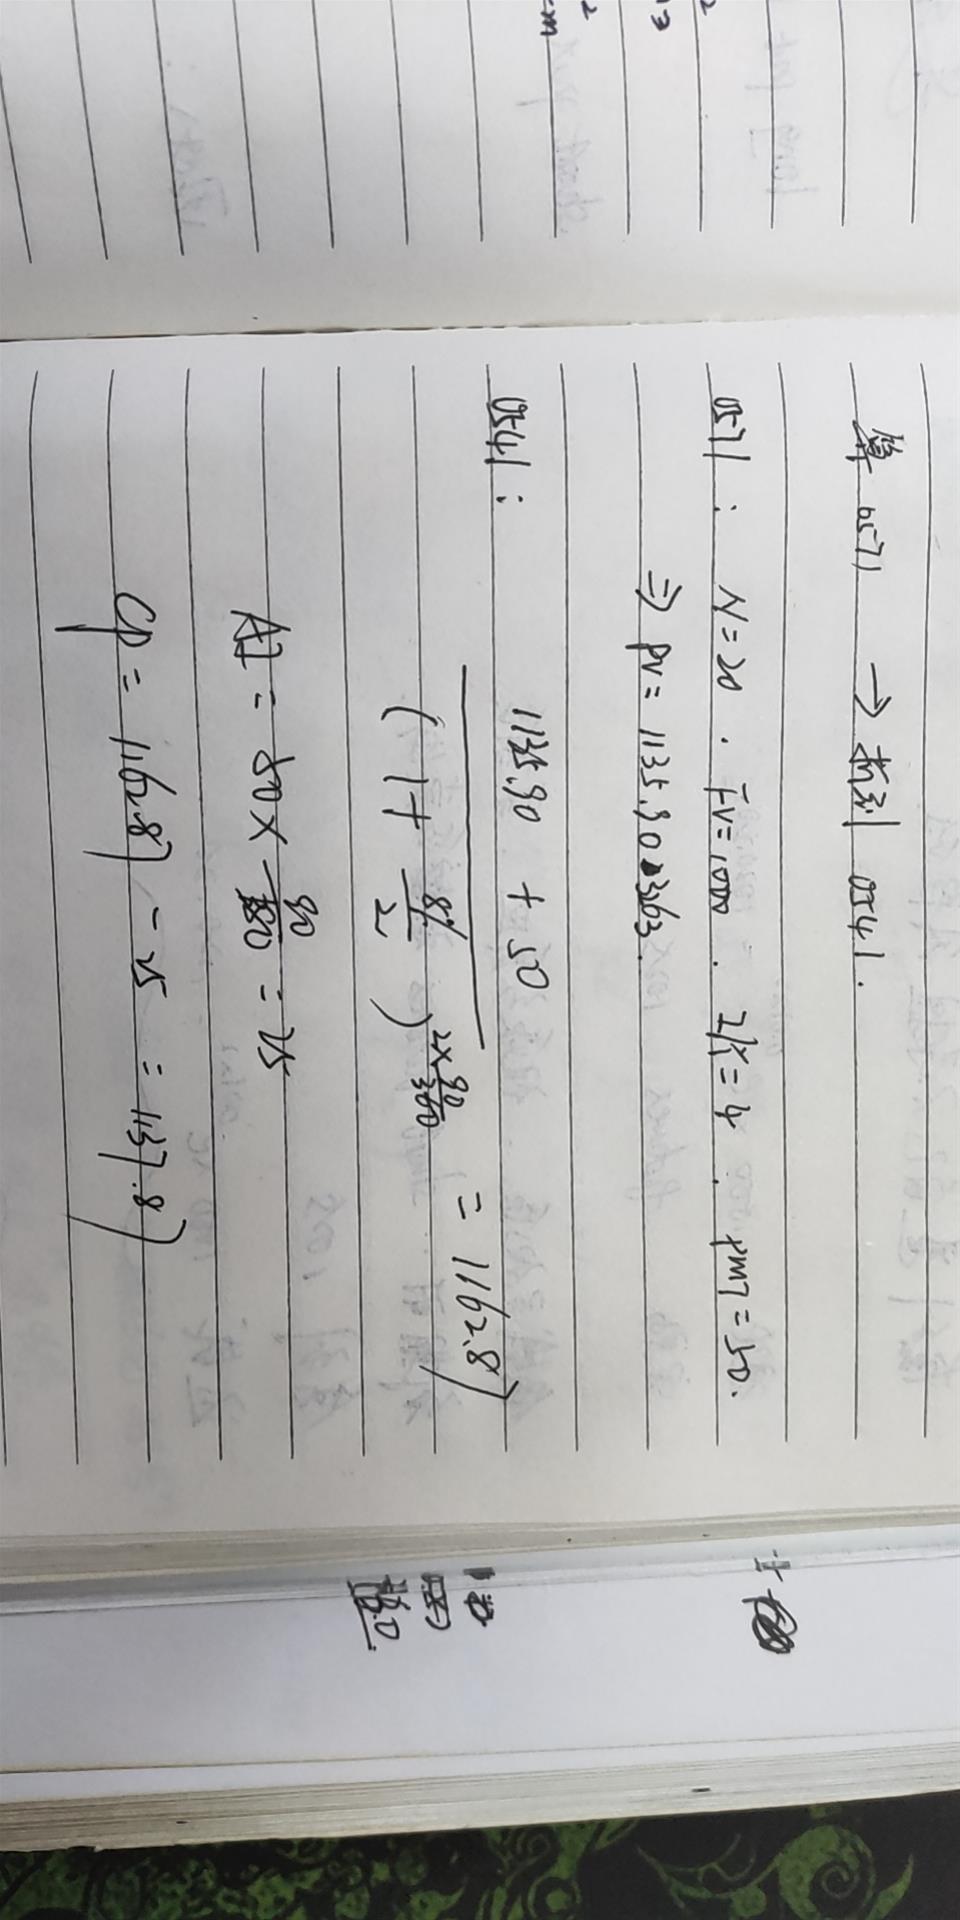 算 0571 → 折到 0541.
0571: N=20. FV=1000. I/Y=4. PMT=50.
⇒ PV= 1135.903263.
0541: 1135.90 + 50
(1+ 8%/2)^2×90/360 = 1162.87
AI = 50× 90/180 = 25
CP = 1162.87 - 25 = 1137.87